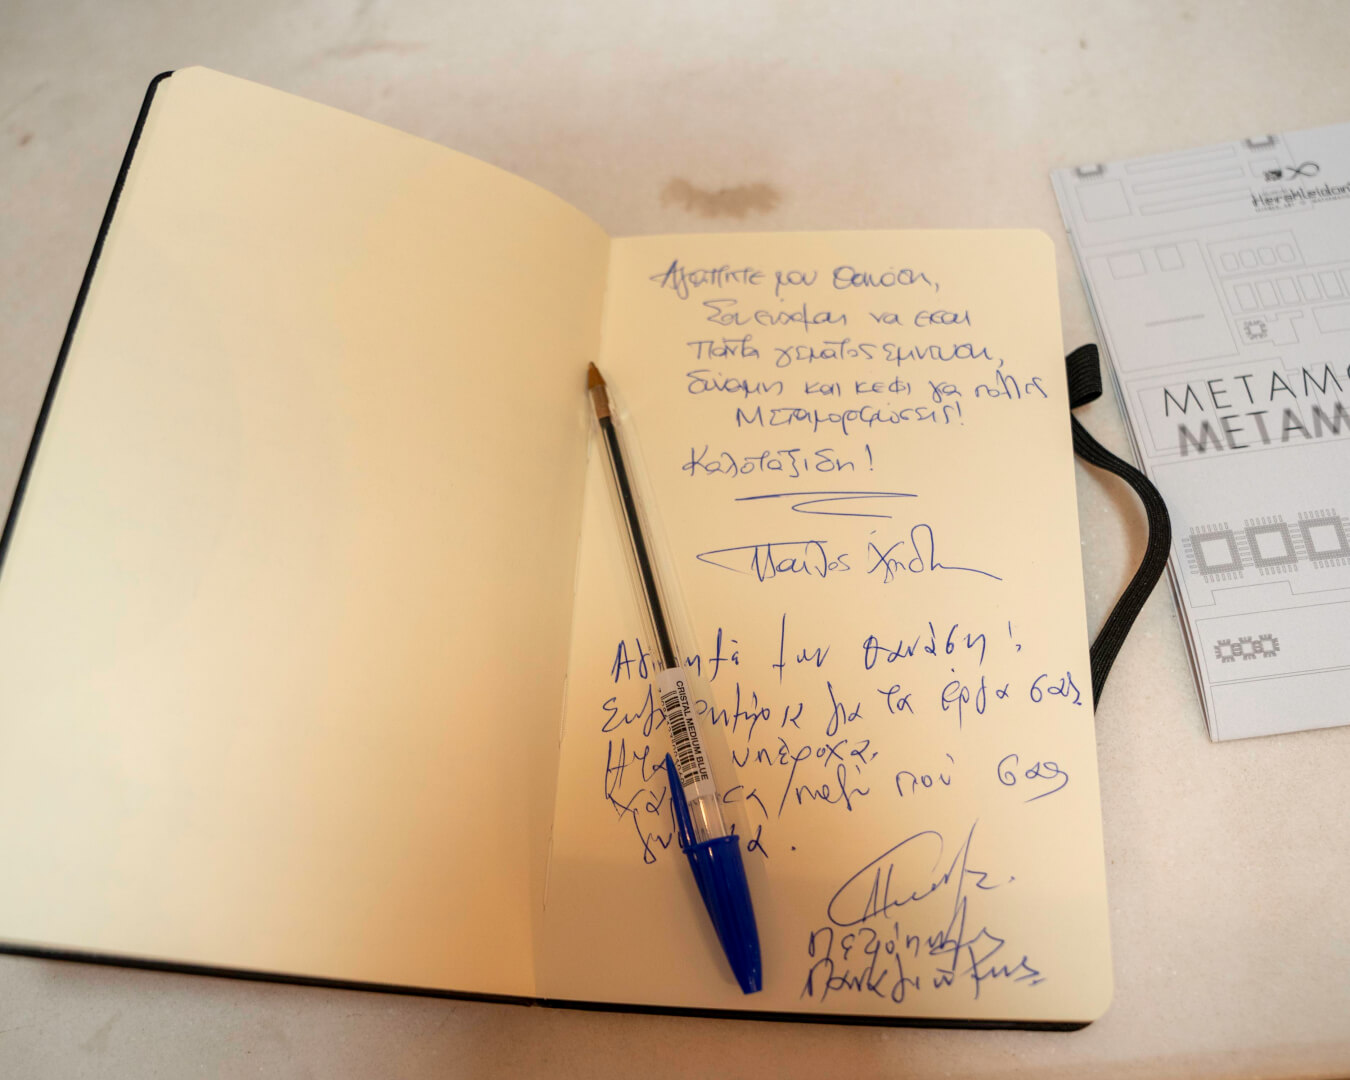 Αγαπητέ μου Θανάση,
Σου εύχομαι να είσαι
πάντα γεμάτος έμπνευση,
δύναμη και κέφι για πολλές
Μεταμορφώσεις!
Καλοτάξιδη!
Παύλος
μου Θανάση!
για τα έργα σας
υπέροχα.
μαζί πού σας
Παναγιώτης
CRISTAL MEDIUM BLUE
Herakleidon
METAMO
METAM